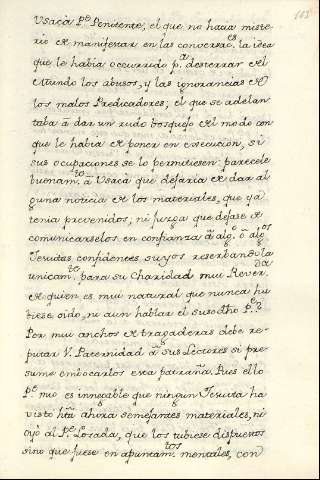 103
Usaca Pe. Penitente; el que no hacia miste-
rio de manifestar en las converso.es la idea
que le habia occurrido pa. desterrar del
Mundo los abusos, y las ignorancias de
los malos Predicadores; el que se adelan-
taba á dar un rudo bosquejo del modo con
que le habia de poner en execucion, si
sus ocupaciones se lo permitiesen: parecele
buenam.te á Usaca que dejaria de dar al
guna noticia de los materiales, que ya
tenia prevenidos; ni juzga que dejase de
comunicarselos en confianza á alg.o ó alg.os
Jesuitas confidentes suyos reserbandola
unicam.te para su Charidad mui Reveren.da
de quien es mui natural que nunca hu
biese oido, ni aun hablar el susodho Pe.?
Por mui anchos de tragaderas debe re-
putar V. Paternidad á sus Lectores si pre-
sume embocarlos esta patraña. Pues ello
Pe. mio es innegable que ningun Jesuita ha
visto hta ahora semejantes materiales, ni
oyó al Pe. Losada, que los tubiese dispuestos
sino que fuese en apuntam.tos mentales, con